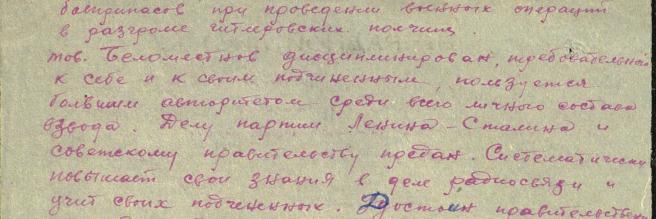 боеприпасов при проведении военных операций
в разгроме гитлеровских полчищ
тов. Беломестнов дисциплинирован, требовательный
к себе и к своим подчиненным, пользуется
большим авторитетом среди всего личного состава
взвода. Делу партии Ленина-Сталина и
советскому правительству предан. Систематически
повышает свои знания в деле радиосвязи и
учит своих подчиненных. Достоин правительствен